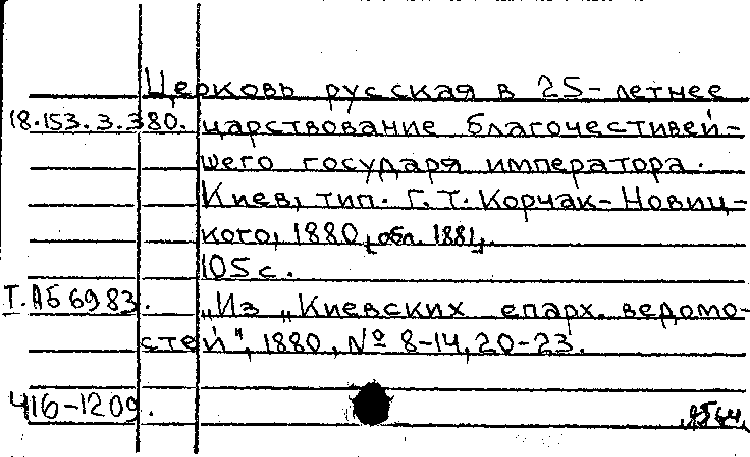 Церковь русская в 25-летнее
18.153.3.380. царствование благочестивей-
шего государя императора.
Киев, тип. Г. Т. Корчак-Новиц-
кого, 1880, [обл. 1881].
105 с.
Т. АБ 6983. „Из „Киевских епарх. ведомо-
стей", 1880, № 8-14, 20-23.
Ч16-1209.